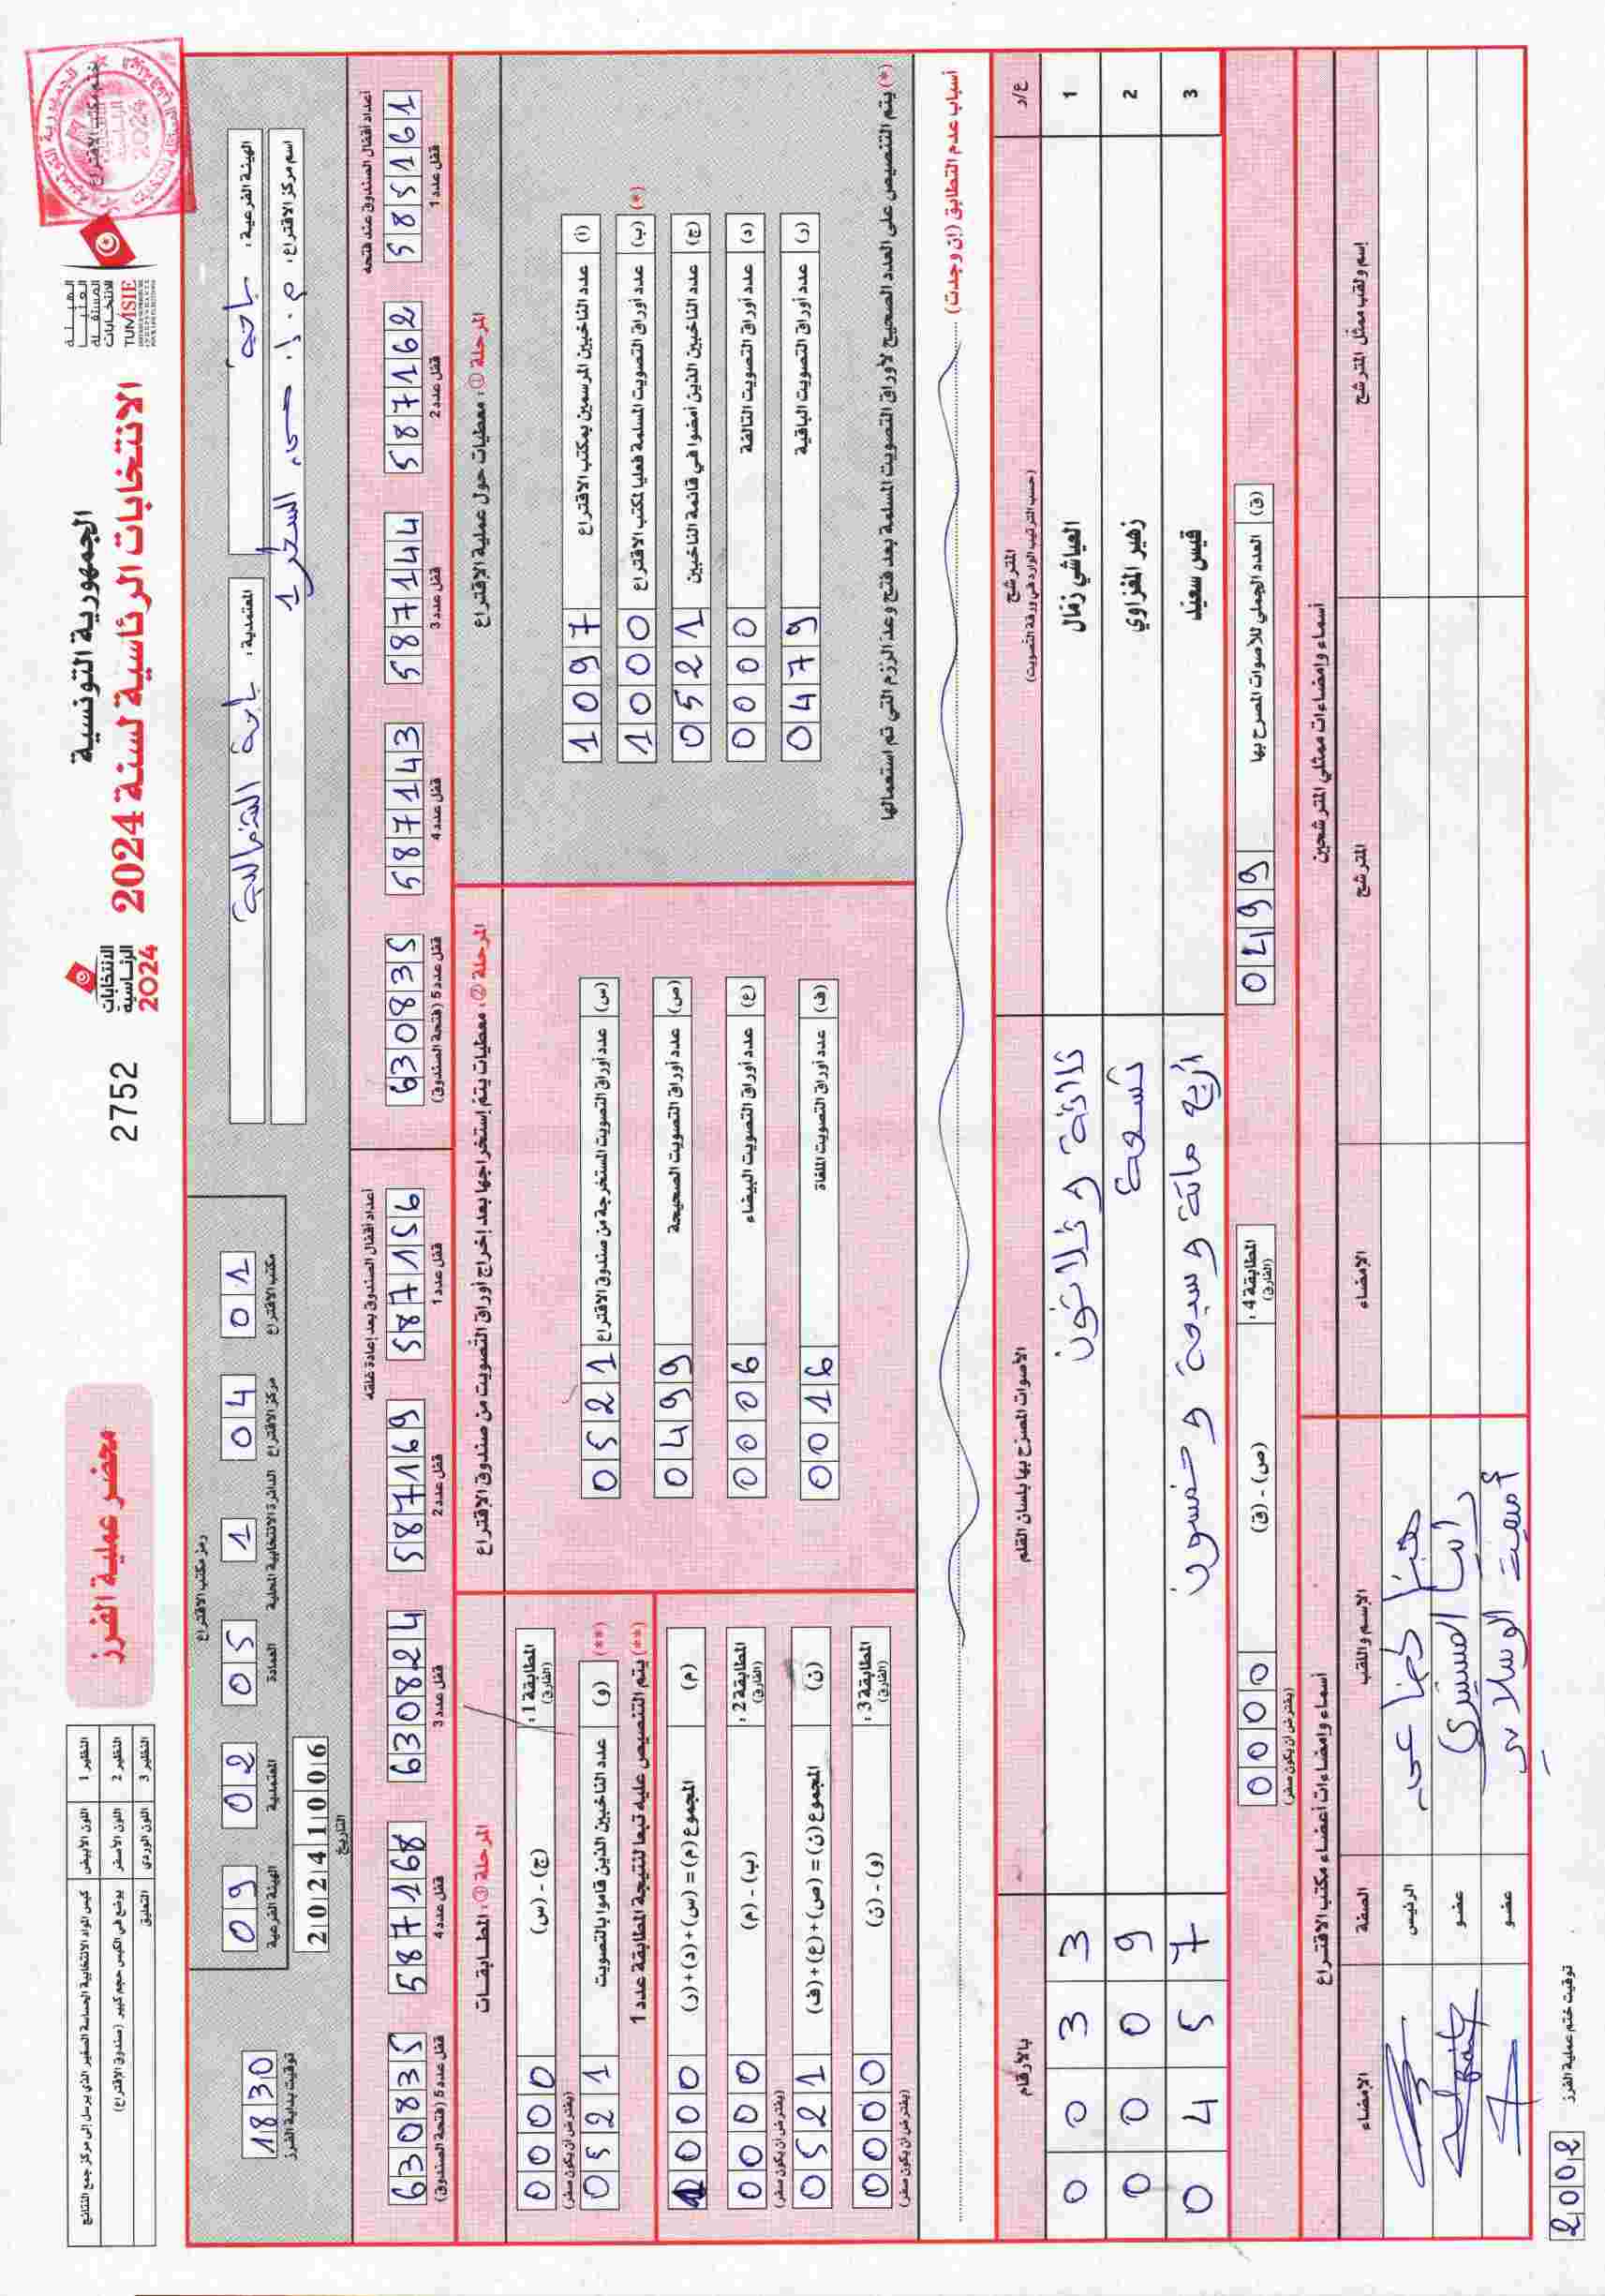 الهيئة
العليا
المستقلة
للانتخابات
TUNISIE
الجمهورية التونسية
الانتخابات الرئاسية لسنة 2024
الانتخابات
الرئاسية
2024
2752
محضر عملية الفرز
النظير 1 اللون الأبيض كيس المواد الانتخابية الحساسة الصغير الذي يرسل إلى مركز جمع النتائج
النظير 2 اللون الأصفر يوضع في الكيس حجم كبير (صندوق الاقتراع)
النظير 3 اللون الوردي التعليق
ختم مكتب الاقتراع
الهيئة الفرعية : باجة
المعتمدية : باجة الشمالية
اسم مركز الاقتراع :
رمز مكتب الاقتراع
01 مكتب الاقتراع
04 مركز الاقتراع
1 الدائرة الانتخابية المحلية
05 العمادة
02 المعتمدية
09 الهيئة الفرعية
20241006
التاريخ
1830
توقيت بداية الفرز
أعداد أقفال الصندوق عند فتحه
585161 قفل عدد 1
587162 قفل عدد 2
587144 قفل عدد 3
587143 قفل عدد 4
630835 قفل عدد 5 (فتحة الصندوق)
أعداد أقفال الصندوق بعد إعادة غلقه
587156 قفل عدد 1
587169 قفل عدد 2
630824 قفل عدد 3
587168 قفل عدد 4
630835 قفل عدد 5 (فتحة الصندوق)
المرحلة ① : معطيات حول عملية الاقتراع
(أ) عدد الناخبين المرسمين بمكتب الاقتراع 1097
(ب) عدد أوراق التصويت المسلمة فعليا لمكتب الاقتراع 1000 (*)
(ج) عدد الناخبين الذين أمضوا في قائمة الناخبين 0521
(د) عدد أوراق التصويت التالفة 0000
(ر) عدد أوراق التصويت الباقية 0479
(*) يتم التنصيص على العدد الصحيح لأوراق التصويت المسلمة بعد فتح وعد الرزم التي تم استعمالها
المرحلة ② : معطيات يتم إستخراجها بعد إخراج أوراق التصويت من صندوق الاقتراع
(س) عدد أوراق التصويت المستخرجة من صندوق الاقتراع 0521
(ص) عدد أوراق التصويت الصحيحة 0499
(ع) عدد أوراق التصويت البيضاء 0006
(ف) عدد أوراق التصويت الملغاة 0016
المرحلة ③ : المطابقات
المطابقة 1 : (الفارق) (ج) - (س) 0000
(يفترض أن يكون صفر)
(و) عدد الناخبين الذين قاموا بالتصويت 0521 (**)
(**) يتم التنصيص عليه تبعا لنتيجة المطابقة عدد 1
(م) المجموع (م) = (س) + (د) + (ر) 1000
المطابقة 2 : (الفارق) (ب) - (م) 0000
(يفترض أن يكون صفر)
(ن) المجموع (ن) = (ص) + (ع) + (ف) 0521
المطابقة 3 : (الفارق) (و) - (ن) 0000
(يفترض أن يكون صفر)
أسباب عدم التطابق (إن وجدت)
ع/د المترشح الأصوات المصرح بها بلسان القلم بالأرقام
(حسب الترتيب الوارد في ورقة التصويت)
1 العياشي زمال ثلاثة و ثلاثون 0033
2 زهير المغزاوي تسعة 0009
3 قيس سعيد أربع مائة وسبعة و خمسون 0457
(ق) العدد الجملي للأصوات المصرح بها 0499
المطابقة 4 : (الفارق) (ص) - (ق) 0000
(يفترض أن يكون صفر)
أسماء وإمضاءات ممثلي المترشحين
إسم ولقب ممثل المترشح المترشح الإمضاء
أسماء وإمضاءات أعضاء مكتب الاقتراع
الإسم واللقب الصفة الإمضاء
الرئيس
عضو
عضو
توقيت ختم عملية الفرز
2002